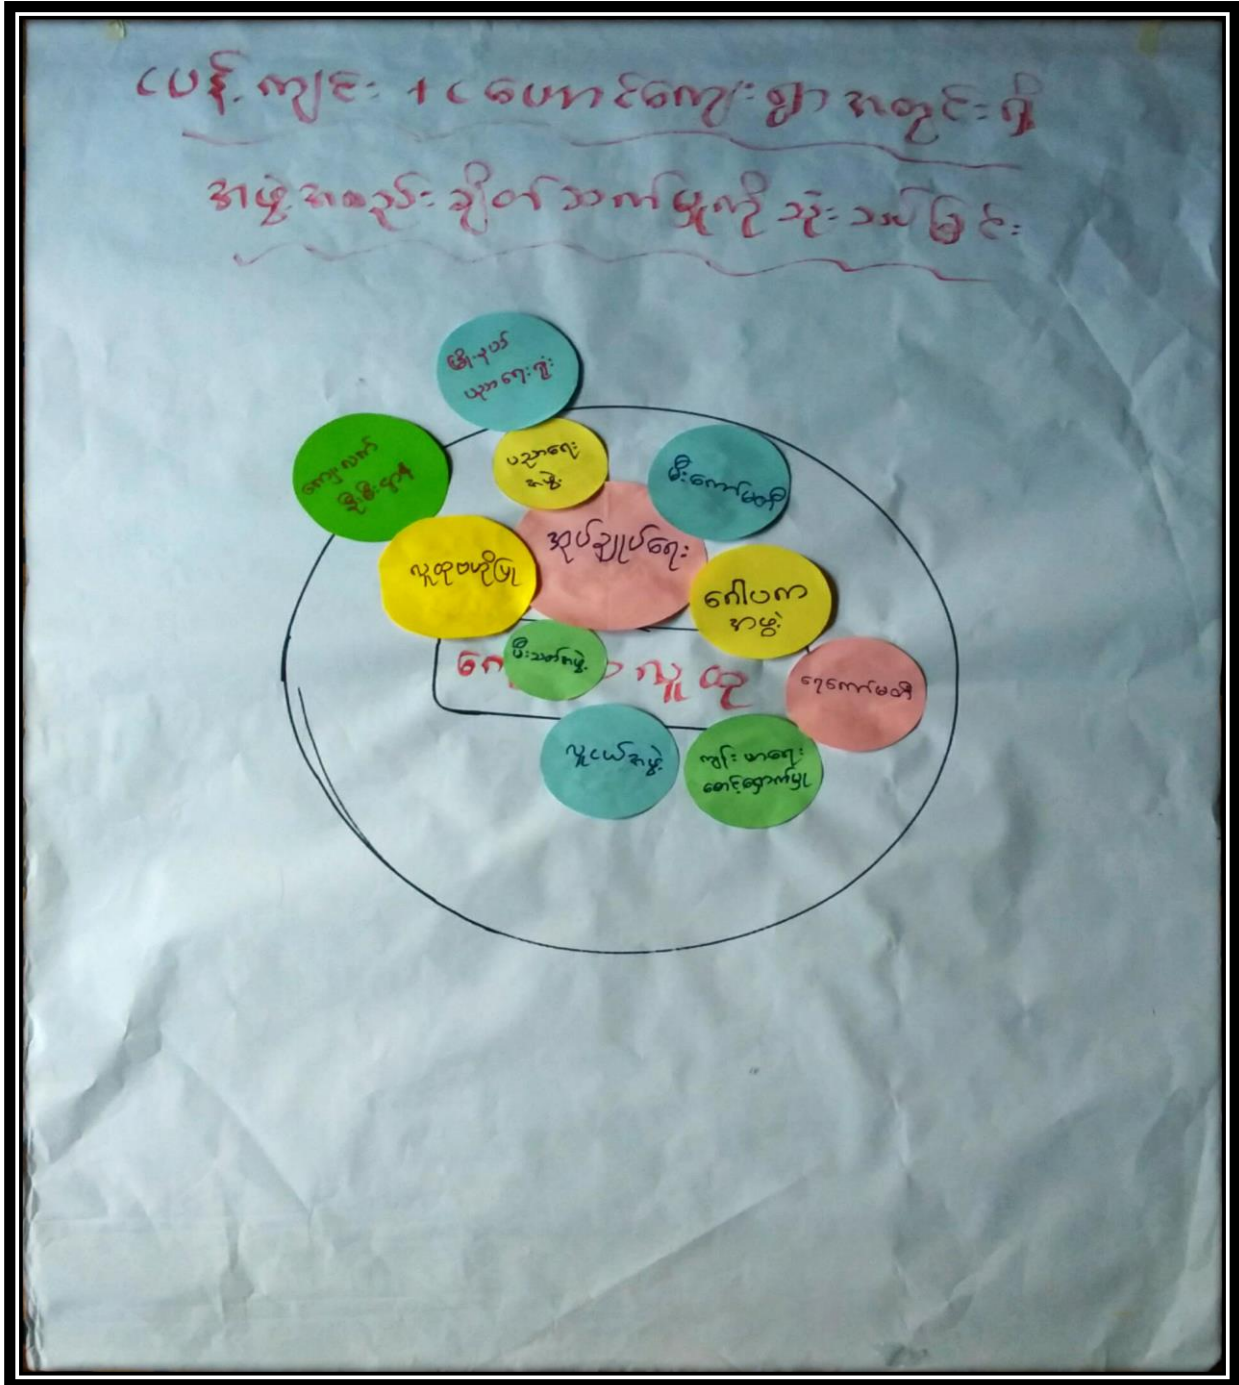 ငပန်.ကျင်း + ငပေါင်ကျေးရွာအတွင်းရှိ
အဖွဲ့အစည်းချိတ်ဆက်မှုကိုသုံးသပ်ခြင်း
မြို့နယ်
ပညာရေးရုံး
ကျေးလက်
ဦးစီးဌာန
ပညာရေး
အဖွဲ့
မီးကော်မတီ
အုပ်ချုပ်ရေး
လူထုဗဟိုပြု
ဂေါပက
အဖွဲ့
မီးသတ်အဖွဲ့
လူထု
ရေကော်မတီ
လူငယ်အဖွဲ့
ကျန်းမာရေး
စောင့်ရှောက်မှု